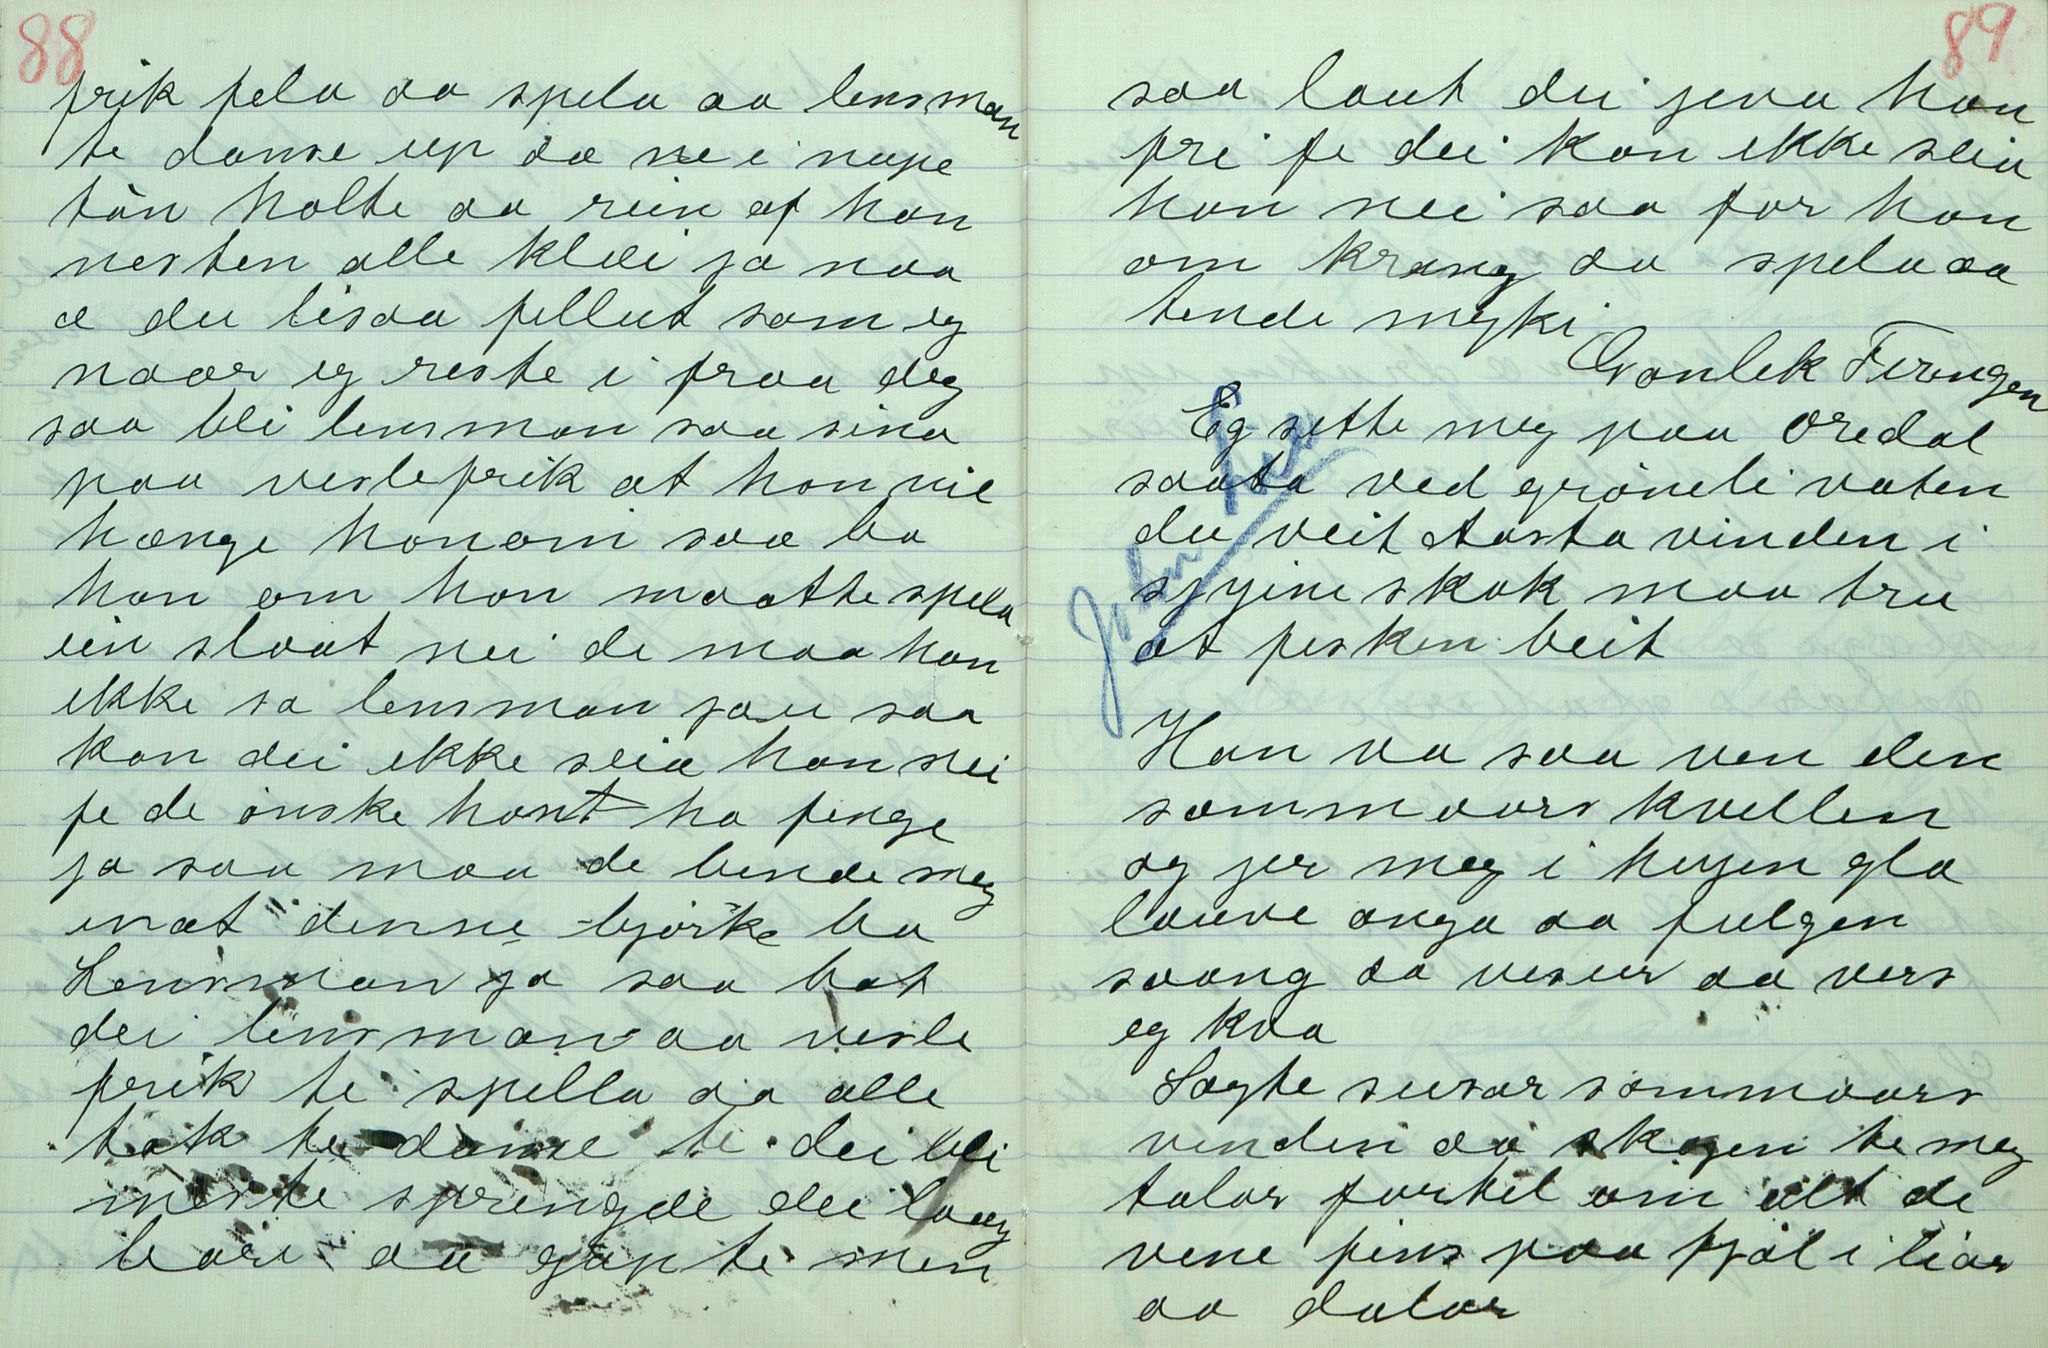 88
frik fela aa spela aa lensman
te danse up aa ne i nupe
tån holte aa rein af han
nesten alle klæi ja naa
æ du lisaa fillut som eg
naar eg reste i fraa deg
saa bli lensman saa sina
paa veslefrik at han vil
hænge honom saa ba
han om han maatte spela
ein slaat nei de maa han
ikke sa lensman jau saa
kan dei ikke seia han nei
fe de ønske hant ha finge
ja saa maa de binde meg
inat denne bjørke ba
Lensman ja saa bat
dei lensman aa vesle
frik te spella aa alle
tok te danse te dei bli
møste sprengde dei laag
bare aa gapte men
89
saa laut dei jeva han
fri fe dei kan ikke seia
han nei saa for han
om kring aa spela aa
tende myki
Gonlek Firingen
Eg sette meg paa Øredal
saata ved grøneli vaten
du veit østa vinden i
syjine skok maa tru
at fisken beit
Han va saa ven den
sommaars kvellen
og jer meg i hugen gla
lauve anga aa fulgen
saang aa visur aa vers
eg kva
Sagte susar sommaars
vinden aa skogen te meg
talar fortel om alt de
vene fins paa fjøl i liar
aa dalar